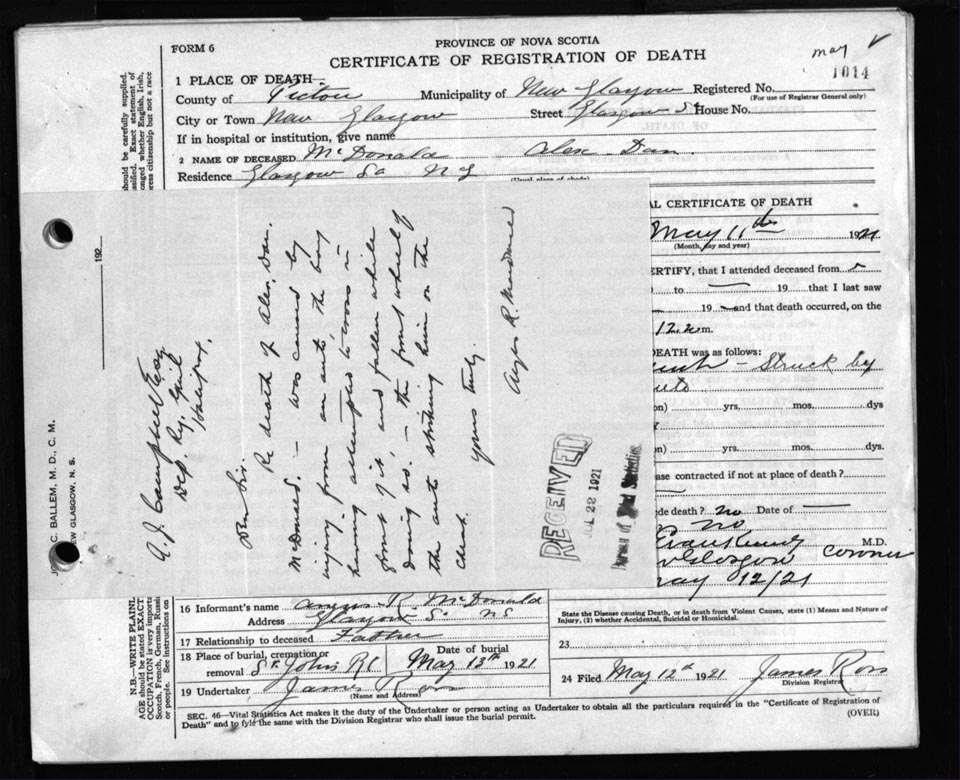 PROVINCE OF NOVA SCOTIA
FORM 6
CERTIFICATE OF REGISTRATION OF DEATH
may
1014
1 PLACE OF DEATH—
County of Pictou Municipality of New Glasgow Registered No.
(For use of Registrar General only)
City or Town New Glasgow Street Glasgow St House No.
If in hospital or institution, give name
2 NAME OF DECEASED McDonald Alex Dan.
Residence Glasgow St N S
(Usual place of abode)
AL CERTIFICATE OF DEATH
May 11th 1921
(Month, day and year)
ERTIFY, that I attended deceased from
to 19 that I last saw
19 and that death occurred, on the
12 m.
DEATH was as follows:
Struck by
auto
on) yrs. mos. dys
on) yrs. mos. dys
ase contracted if not at place of death?
ede death? no Date of
no
M.D.
Glasgow Coroner
May 12/21
State the Disease causing Death, or in death from Violent Causes, state (1) Means and Nature of
Injury, (2) whether Accidental, Suicidal or Homicidal.
23
24 Filed May 12th 1921 James Ross
Division Registrar
16 Informant's name Angus R. McDonald
Address Glasgow St NS
17 Relationship to deceased Father
18 Place of burial, cremation or Date of burial
removal St. Johns RC May 13th 1921
19 Undertaker James Ross
(Name and Address)
SEC. 46—Vital Statistics Act makes it the duty of the Undertaker or person acting as Undertaker to obtain all the particulars required in the "Certificate of Registration of
Death" and to fyle the same with the Division Registrar who shall issue the burial permit.
(OVER)
C. BALLEM, M. D., C. M.
EW GLASGOW, N. S.
192
A. J. Campbell Esq
Dep. Reg. Gen'l
Halifax,
Dear Sir.
Re death of Alex. Dan.
McDonald. – was caused by
injury from an auto the boy
having attempted to cross in
front of it and fallen while
doing so. – the front wheel of
the auto striking him on the
chest.
yours truly.
Angus R. McDonald
RECEIVED
JUL 22 1921
Bureau of Vital Statistics
should be carefully supplied.
ssified. Exact statement of
onged whether English, Irish,
ress citizenship but not a race
N.B.—WRITE PLAINL
AGE should be stated EXACT
OCCUPATION is very importa
Scotch, French, German, Russia
or people. See instructions on